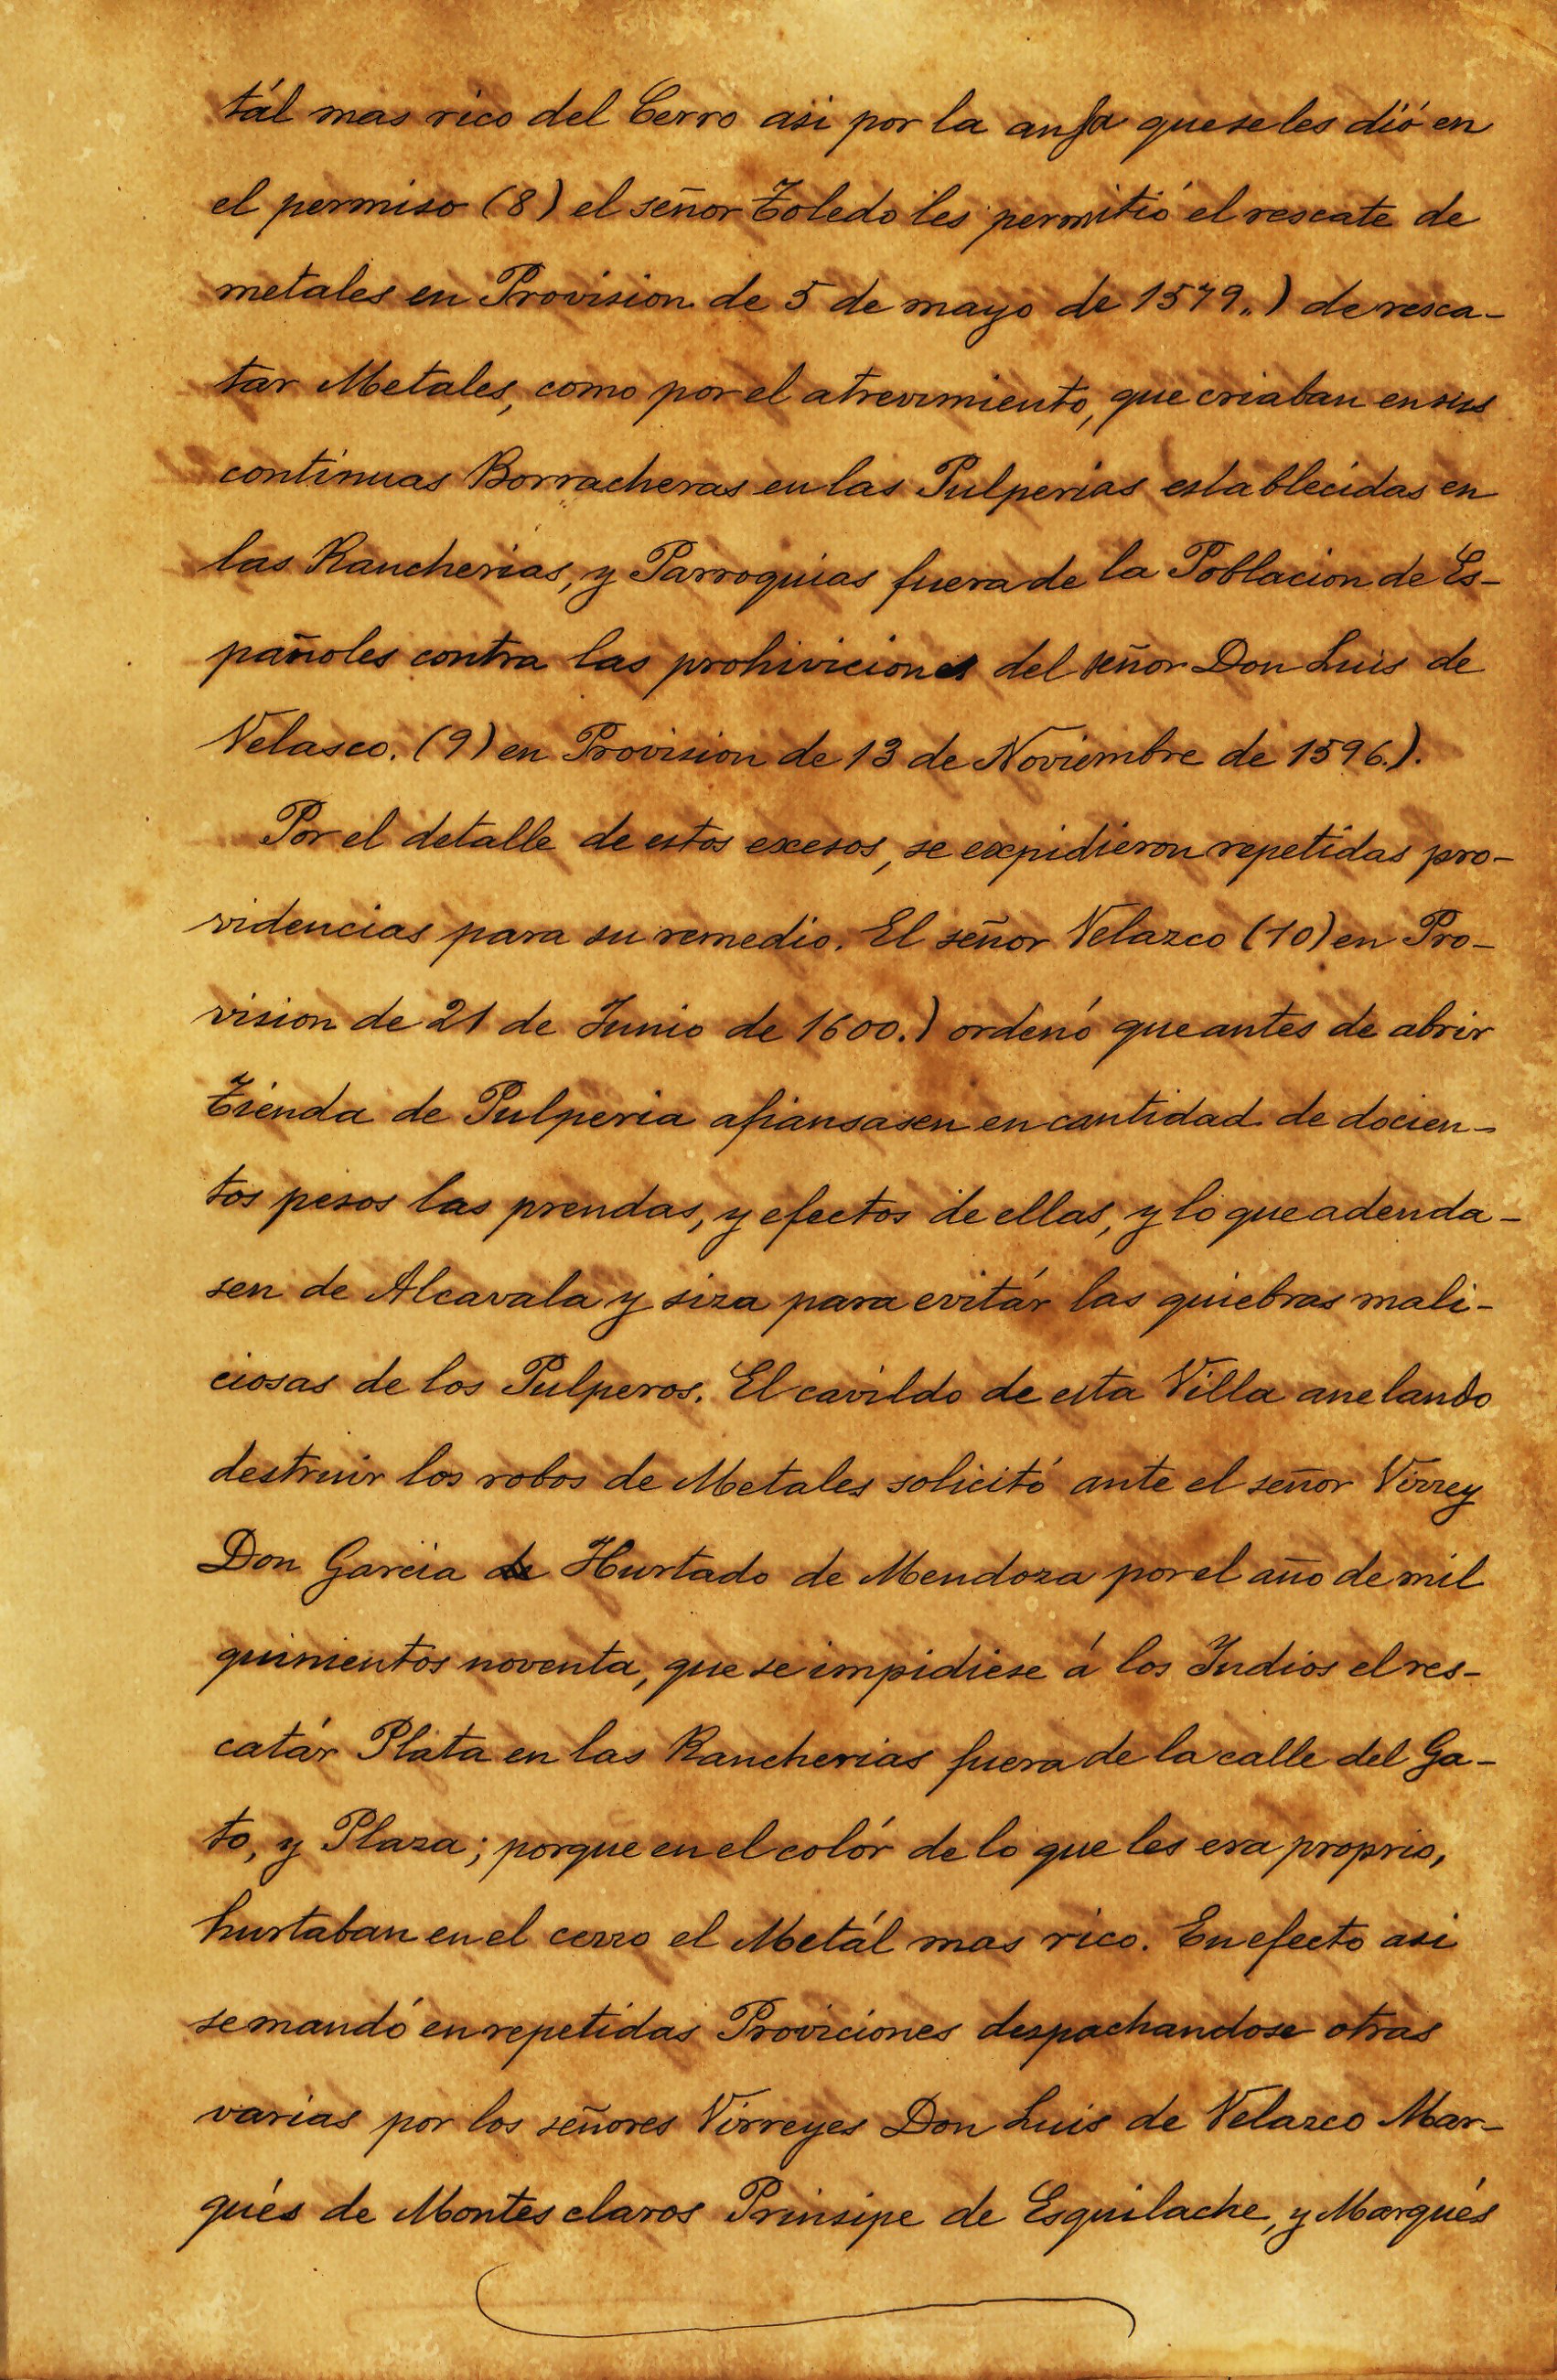 tál mas rico del Cerro asi por la ansa queseles dió en
el permiso (8) el señor Toledo les permitió el rescate de
metales en Provision de 5 de mayo de 1579.,) de resca-
tar Metales, como por el atrevimiento, que criaban en sus
continuas Borracheras en las Pulperias establecidas en
las Rancherias, y Parroquias fuera de la Poblacion de Es-
pañoles contra las prohiviciones del señor Don Luis de
Velasco. (9) en Provision de 13 de Noviembre de 1596.).
Por el detalle de estos excesos, se expidieron repetidas pro-
videncias para su remedio. El señor Velazco (10) en Pro-
vision de 21 de Junio de 1600.) ordenó que antes de abrir
Tienda de Pulperia afiansasen en cantidad de docien-
tos pesos las prendas, y efectos de ellas, y lo que adeuda-
sen de Alcavala y siza para evitár las quiebras mali-
ciosas de los Pulperos. El cavildo de esta Villa anelando
destruir los robos de Metales solicitó ante el señor Virrey
Don Garcia de Hurtado de Mendoza por el año de mil
quinientos noventa, que se impidiese á los Indios el res-
catár Plata en las Rancherias fuera de la calle del Ga-
to, y Plaza; porque en el colór de lo que les era proprio,
hurtaban en el cerro el Metál mas rico. En efecto asi
se mandó en repetidas Proviciones despachandose otras
varias por los señores Virreyes Don Luis de Velazco Mar-
qués de Montes claros Prinsipe de Esquilache, y Marqués